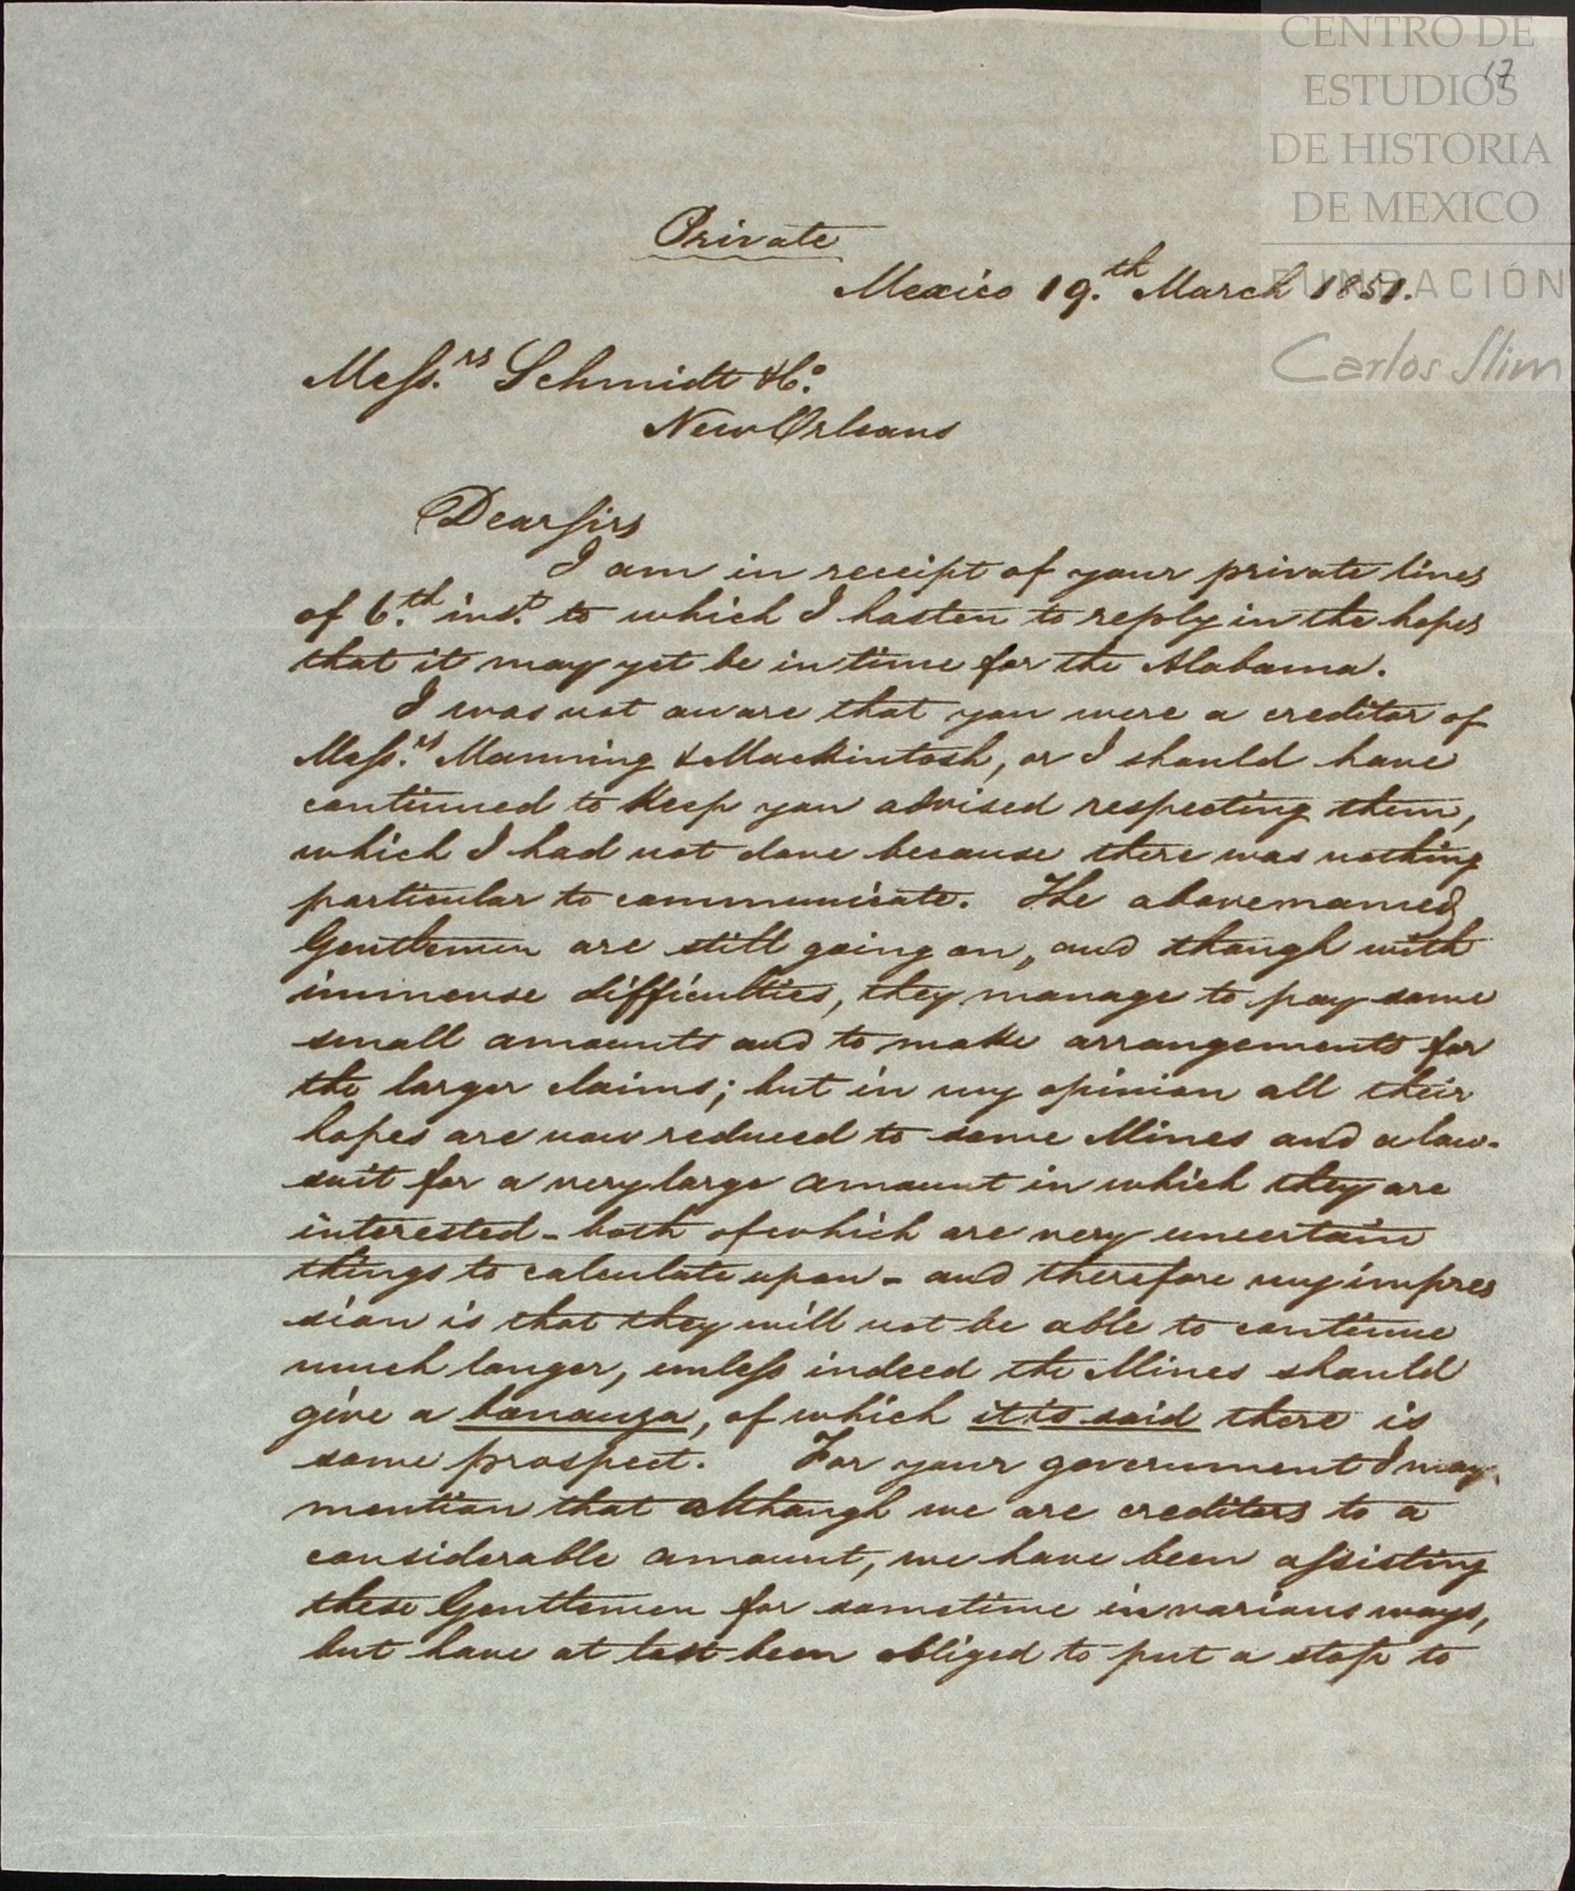 CENTRO DE
ESTUDIOS
DE HISTORIA
DE MEXICO
FUNDACIÓN
Carlos Slim
17
Private
Mexico 19.th March 1851.
Mess.rs Schmidt & Co.
New Orleans
Dear Sirs
I am in receipt of your private lines
of 6.th inst. to which I hasten to reply in the hopes
that it may yet be in time for the Alabama.
I was not aware that you were a creditor of
Mess.rs Manning & Mackintosh, or I should have
continued to keep you advised respecting them,
which I had not done because there was nothing
particular to communicate. The abovenamed
Gentlemen are still going on, and though with
immense difficulties, they manage to pay some
small amounts and to make arrangements for
the larger claims; but in my opinion all their
hopes are now reduced to some Mines and a law-
suit for a very large amount in which they are
interested - both of which are very uncertain
things to calculate upon - and therefore my impres
sion is that they will not be able to continue
much longer, unless indeed the Mines should
give a bonanza, of which it is said there is
some prospect. For your government I may
mention that although we are creditors to a
considerable amount, we have been assisting
these Gentlemen for sometime in various ways,
but have at last been obliged to put a stop to